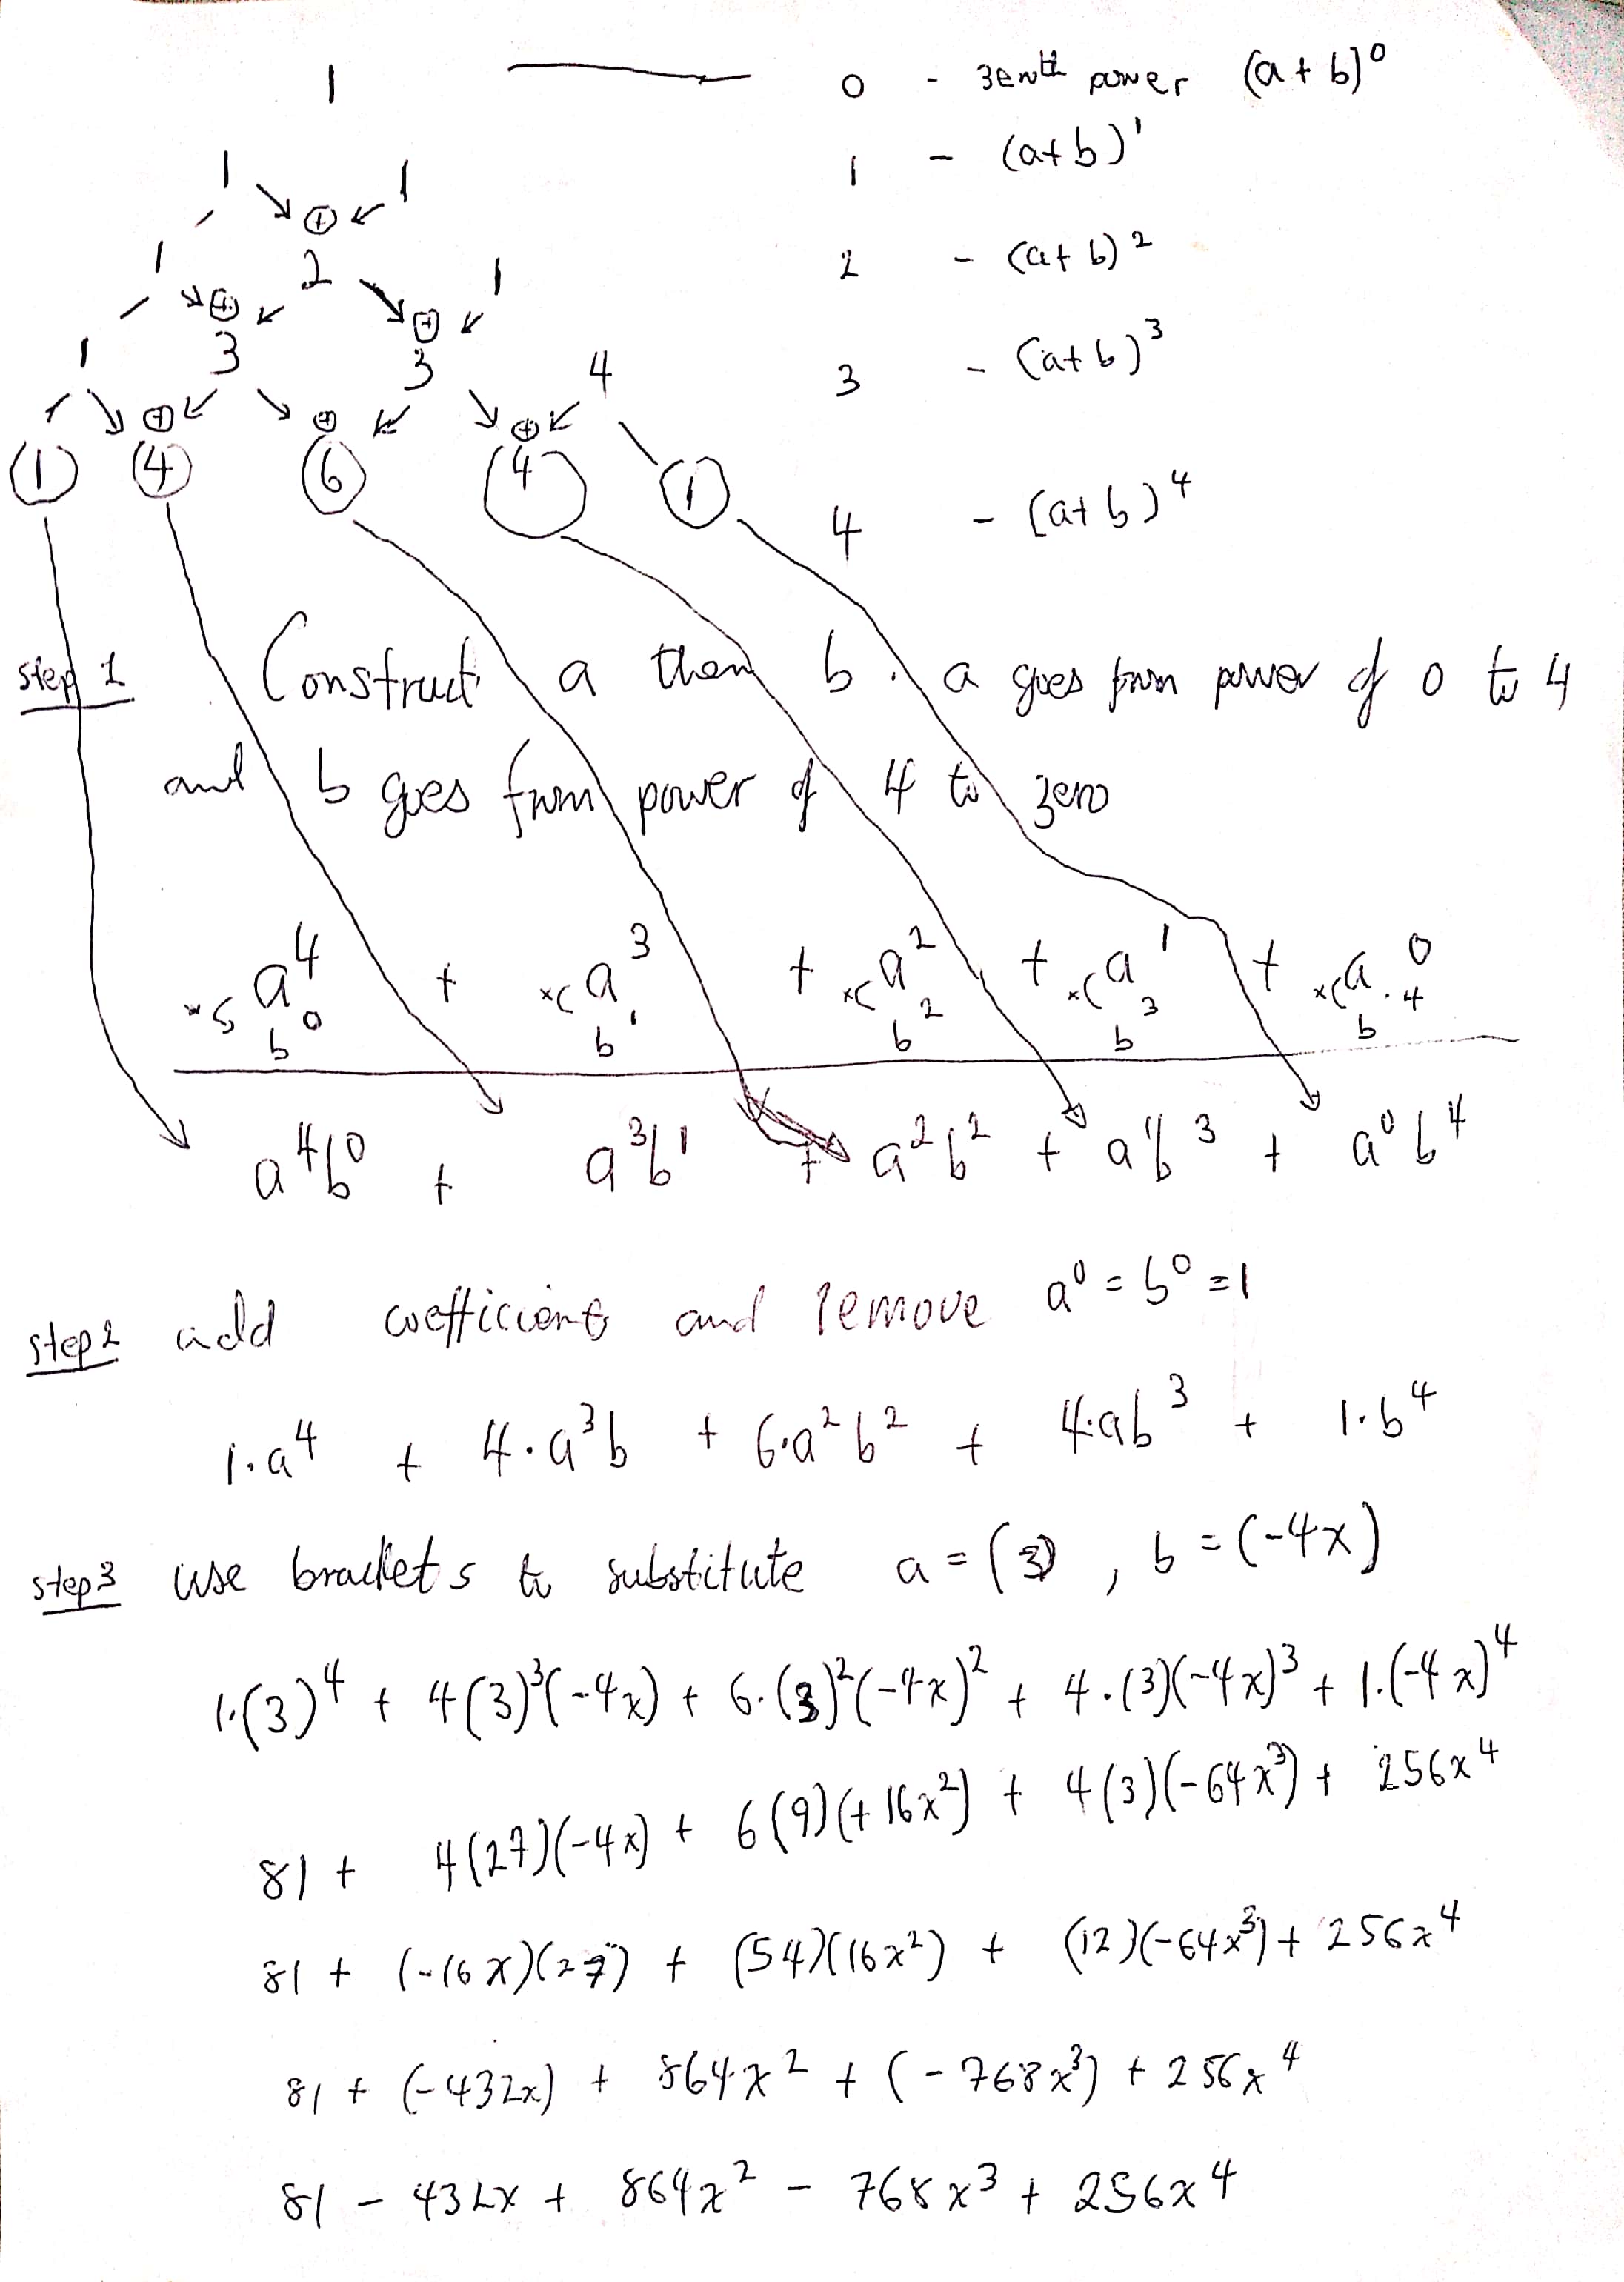 1 —— 0 - zeroth power (a + b)⁰
1 1 1 - (a+b)¹
⊕
1 2 1 2 - (a+b)²
⊕ ⊕
1 3 3 4 3 - (a+b)³
⊕ ⊕ ⊕
1 4 6 4 1 4 - (a+b)⁴
step 1 Construct a then b. a goes from power of 0 to 4
and b goes from power of 4 to zero
a⁴ + a³ + a² + a¹ + a⁰
b⁰ b¹ b² b³ b⁴
a⁴b⁰ + a³b¹ + a²b² + a¹b³ + a⁰b⁴
step 2 add coefficients and remove a⁰ = b⁰ = 1
1·a⁴ + 4·a³b + 6·a²b² + 4·ab³ + 1·b⁴
step 3 use brackets to substitute a = (3), b = (-4x)
1·(3)⁴ + 4(3)³(-4x) + 6·(3)²(-4x)² + 4·(3)(-4x)³ + 1·(-4x)⁴
81 + 4(27)(-4x) + 6(9)(+16x²) + 4(3)(-64x³) + 256x⁴
81 + (-16x)(27) + (54)(16x²) + (12)(-64x³) + 256x⁴
81 + (-432x) + 864x² + (-768x³) + 256x⁴
81 - 432x + 864x² - 768x³ + 256x⁴